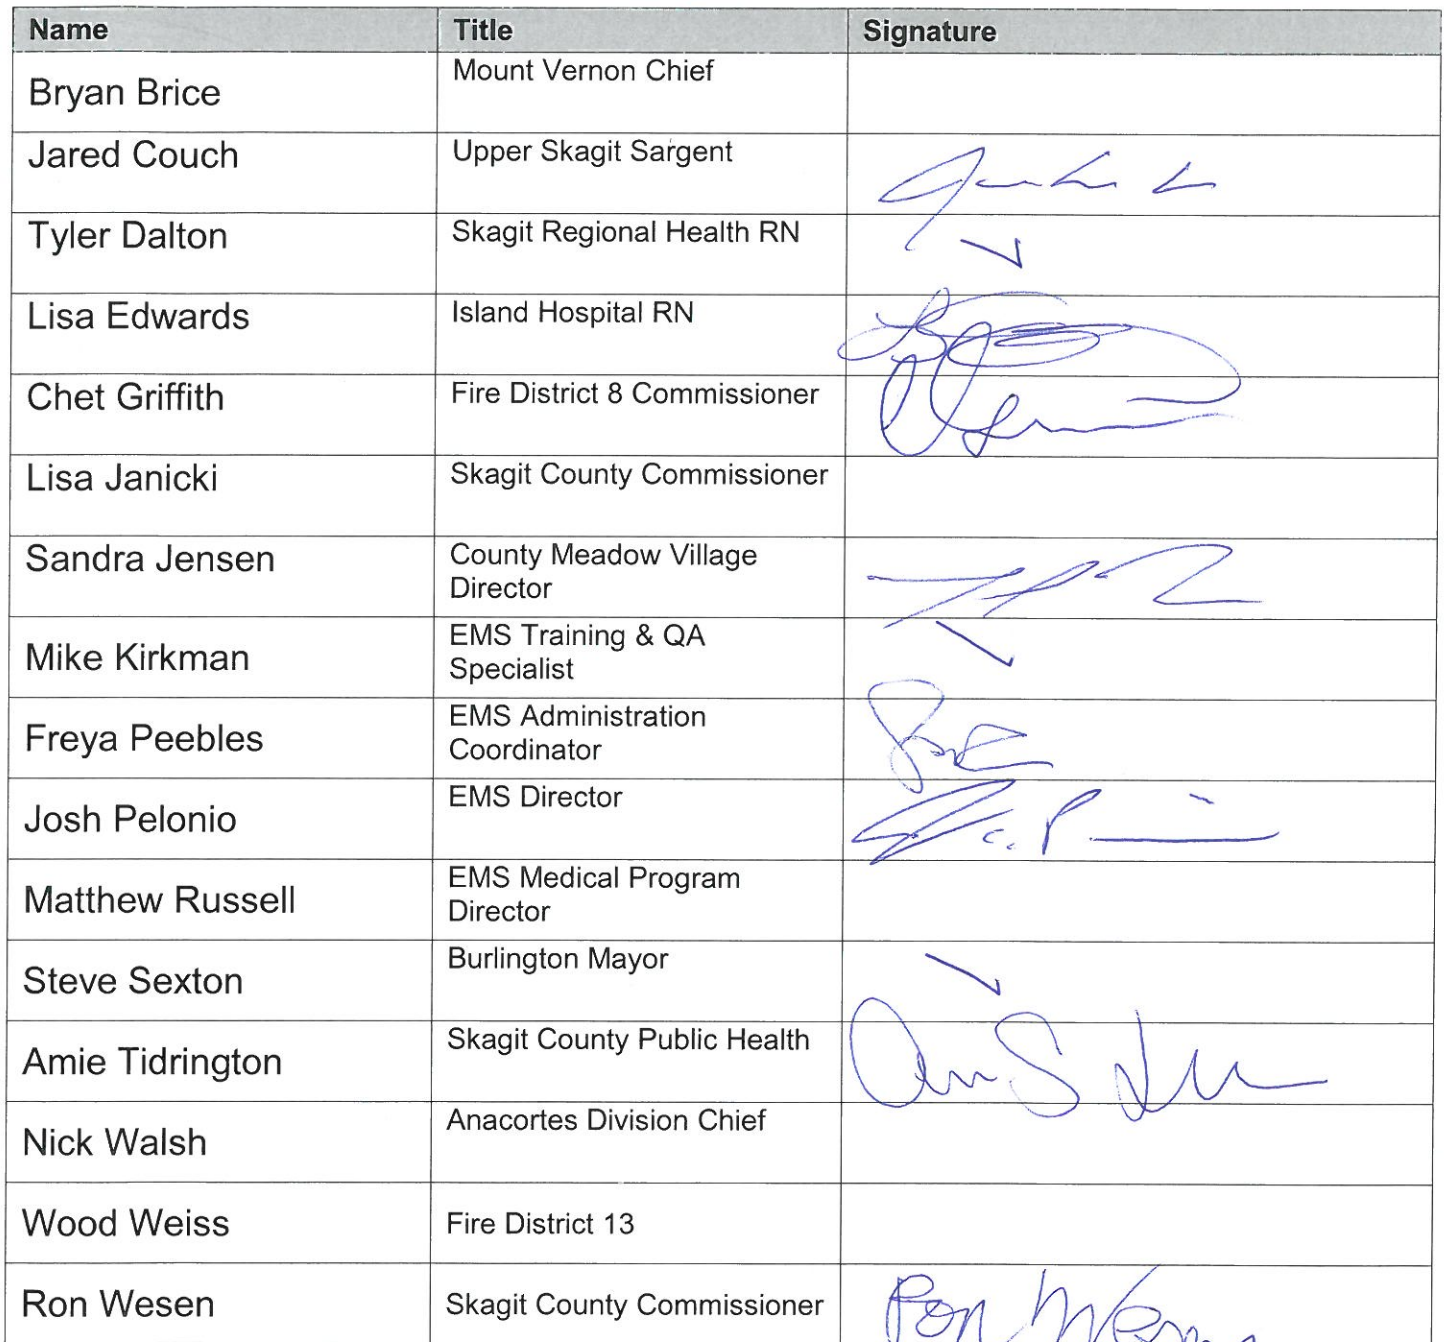 Name Title Signature
Bryan Brice Mount Vernon Chief
Jared Couch Upper Skagit Sargent
Tyler Dalton Skagit Regional Health RN
Lisa Edwards Island Hospital RN
Chet Griffith Fire District 8 Commissioner
Lisa Janicki Skagit County Commissioner
Sandra Jensen County Meadow Village
Director
Mike Kirkman EMS Training & QA
Specialist
Freya Peebles EMS Administration
Coordinator
Josh Pelonio EMS Director
Matthew Russell EMS Medical Program
Director
Steve Sexton Burlington Mayor
Amie Tidrington Skagit County Public Health
Nick Walsh Anacortes Division Chief
Wood Weiss Fire District 13
Ron Wesen Skagit County Commissioner Ron Wesen